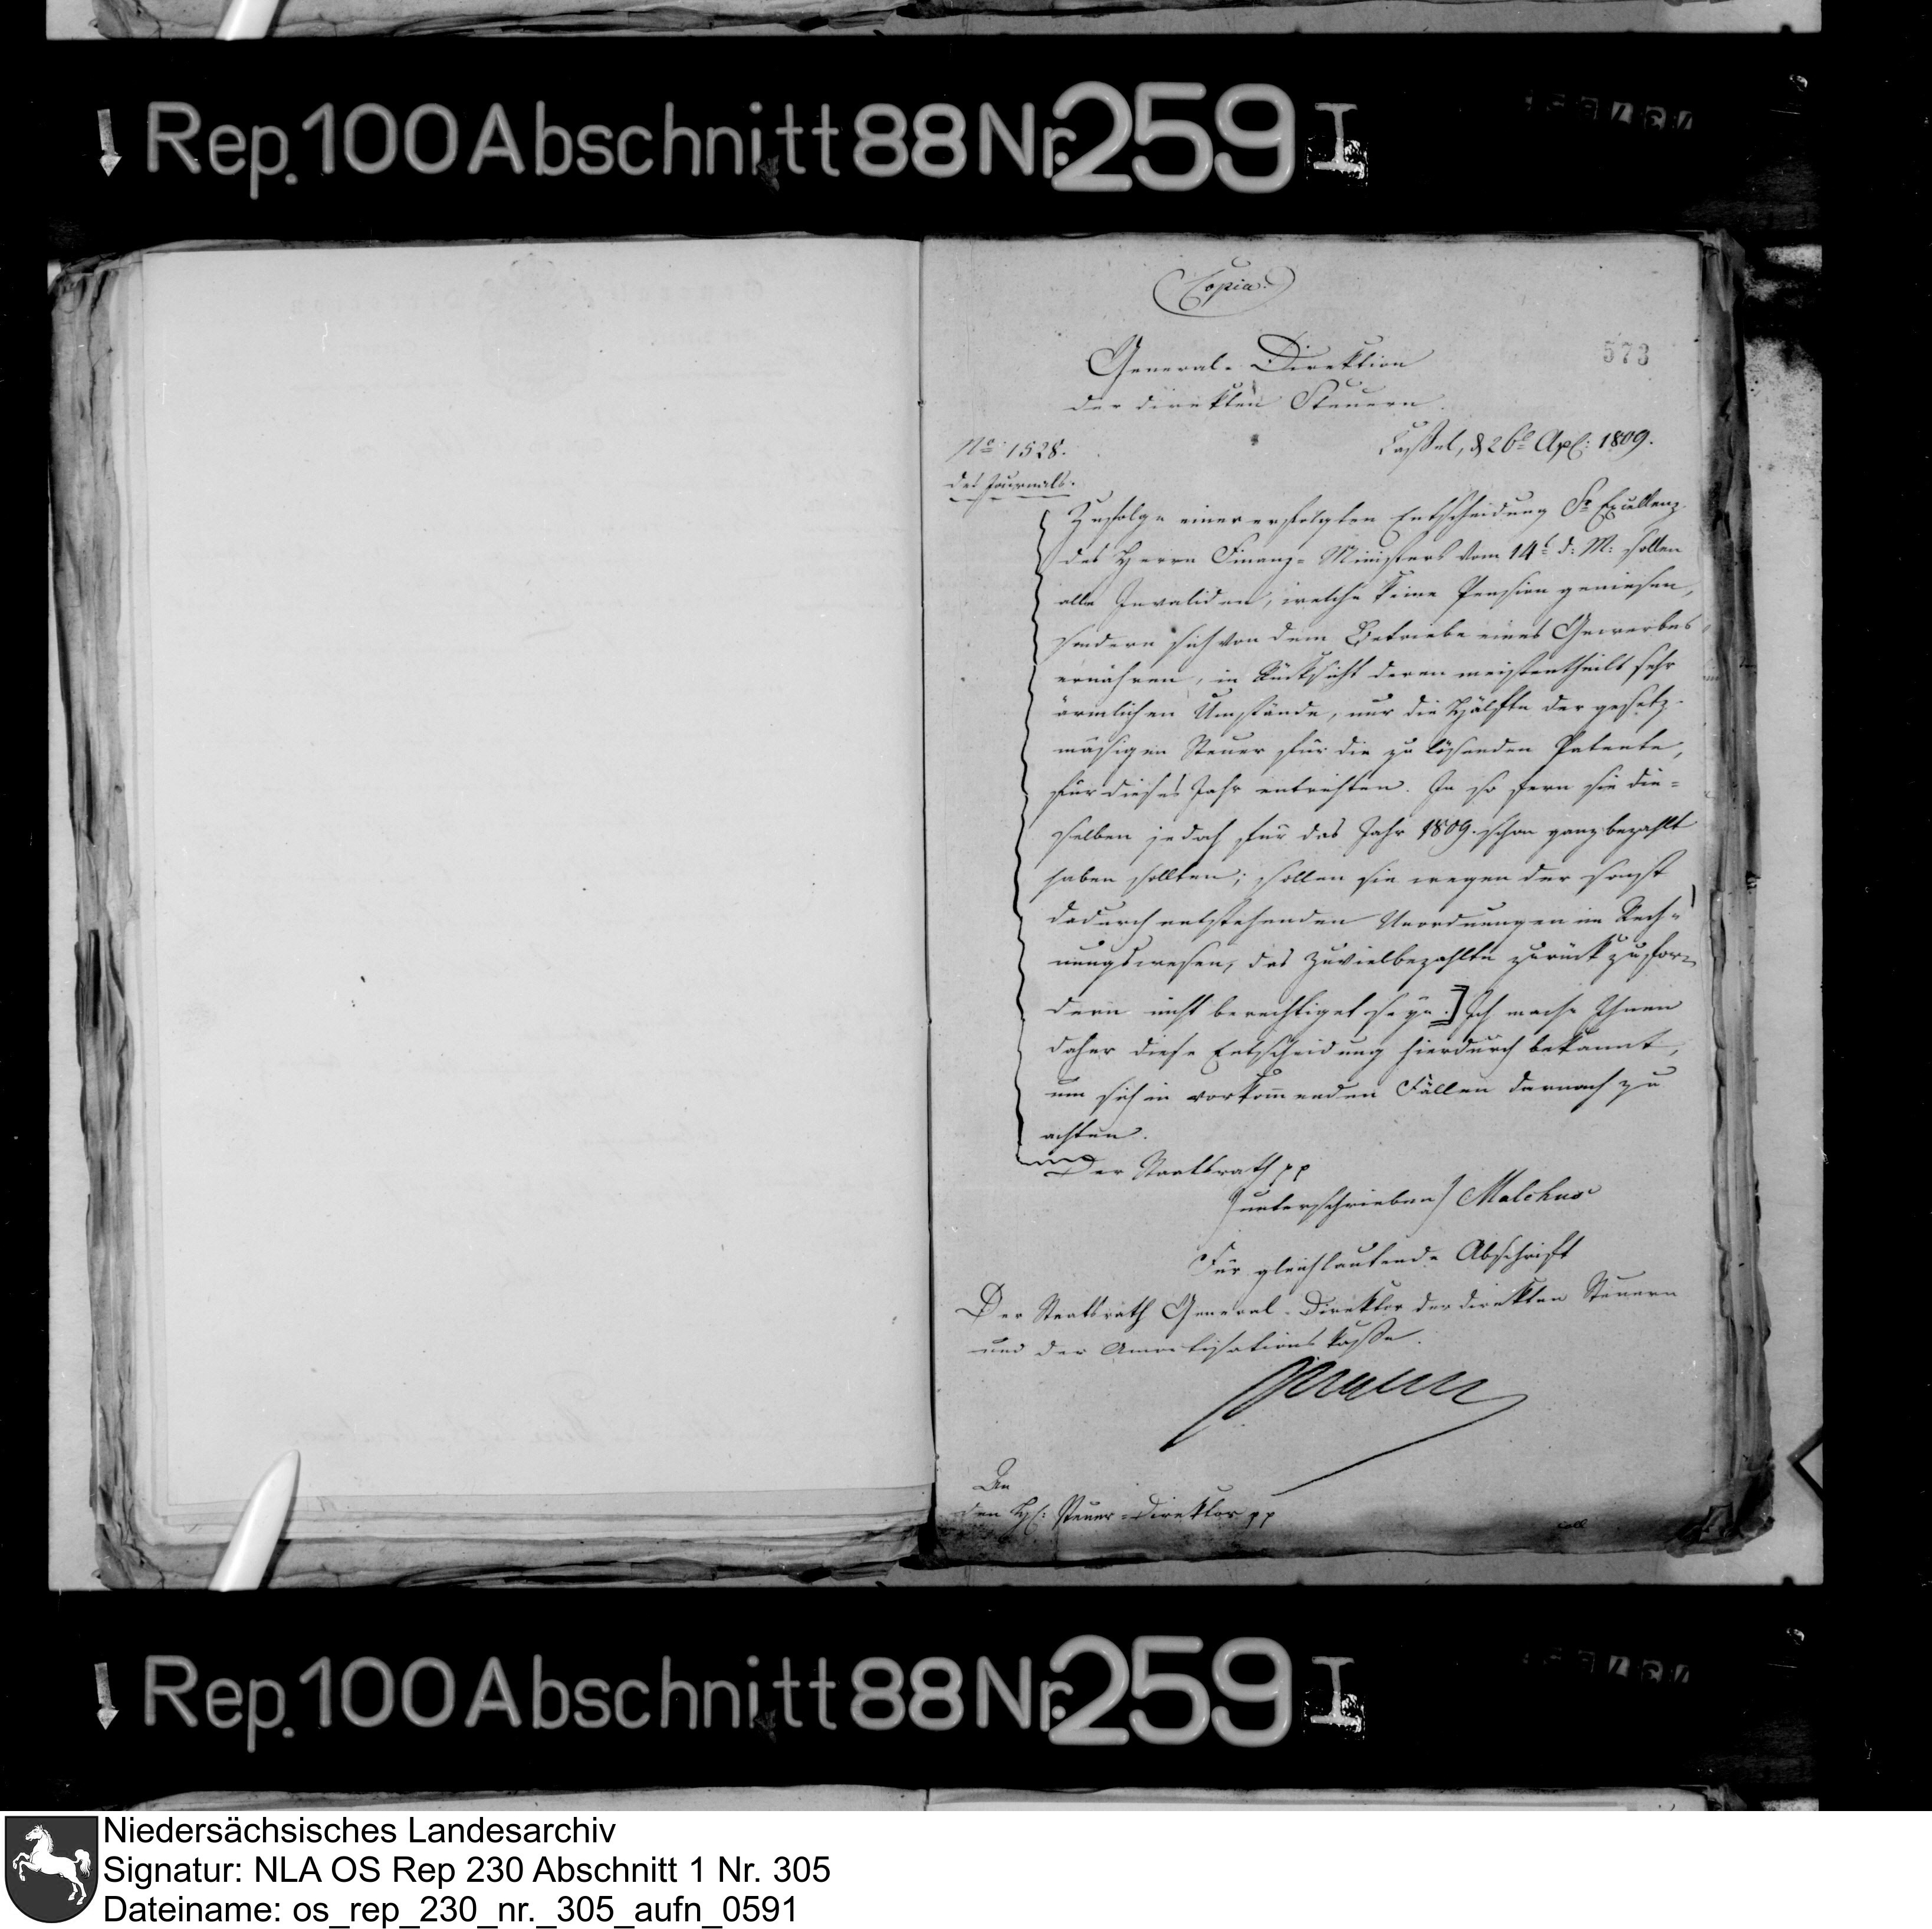 Rep. 100 Abschnitt 88 Nr. 259 I
Copia.
573
General-Direktion
der direkten Steuern.
No. 1528.
des Journals.
Cassel, d 26t Apl: 1809.
Zufolge einer erfolgten Entscheidung Sr Excellenz
des Herrn Finanz-Ministers vom 14t d: M: sollen
alle Invaliden, welche keine Pension geniesen,
sondern sich von dem Betriebe eines Gewerbes
ernähren, in Rücksicht deren meistentheils sehr
ärmlichen Umstände, nur die Hälfte der gesetz-
mäsigen Steuer für die zu lösenden Patente,
für dieses Jahr entrichten. In so fern sie die-
selben jedoch für das Jahr 1809. schon ganz bezahlt
haben sollten; sollen sie wegen der sonst
dadurch entstehenden Unordnungen im Rech-
nungswesen, das zuvielbezahlte zurück zu for-
dern nicht berechtiget seyn.] Ich mache Ihnen
daher diese Entscheidung hierdurch bekannt,
um sich in vorkommenden Fällen darnach zu
achten.
Der Staatsrath pp
(unterschrieben) Malchus
Für gleichlautende Abschrift
Der Staatsrath General-Direktor der direkten Steuern
und der Amortisations Kasse.
An
den H: Steuer-Direktor pp
Rep. 100 Abschnitt 88 Nr. 259 I
Niedersächsisches Landesarchiv
Signatur: NLA OS Rep 230 Abschnitt 1 Nr. 305
Dateiname: os_rep_230_nr._305_aufn_0591